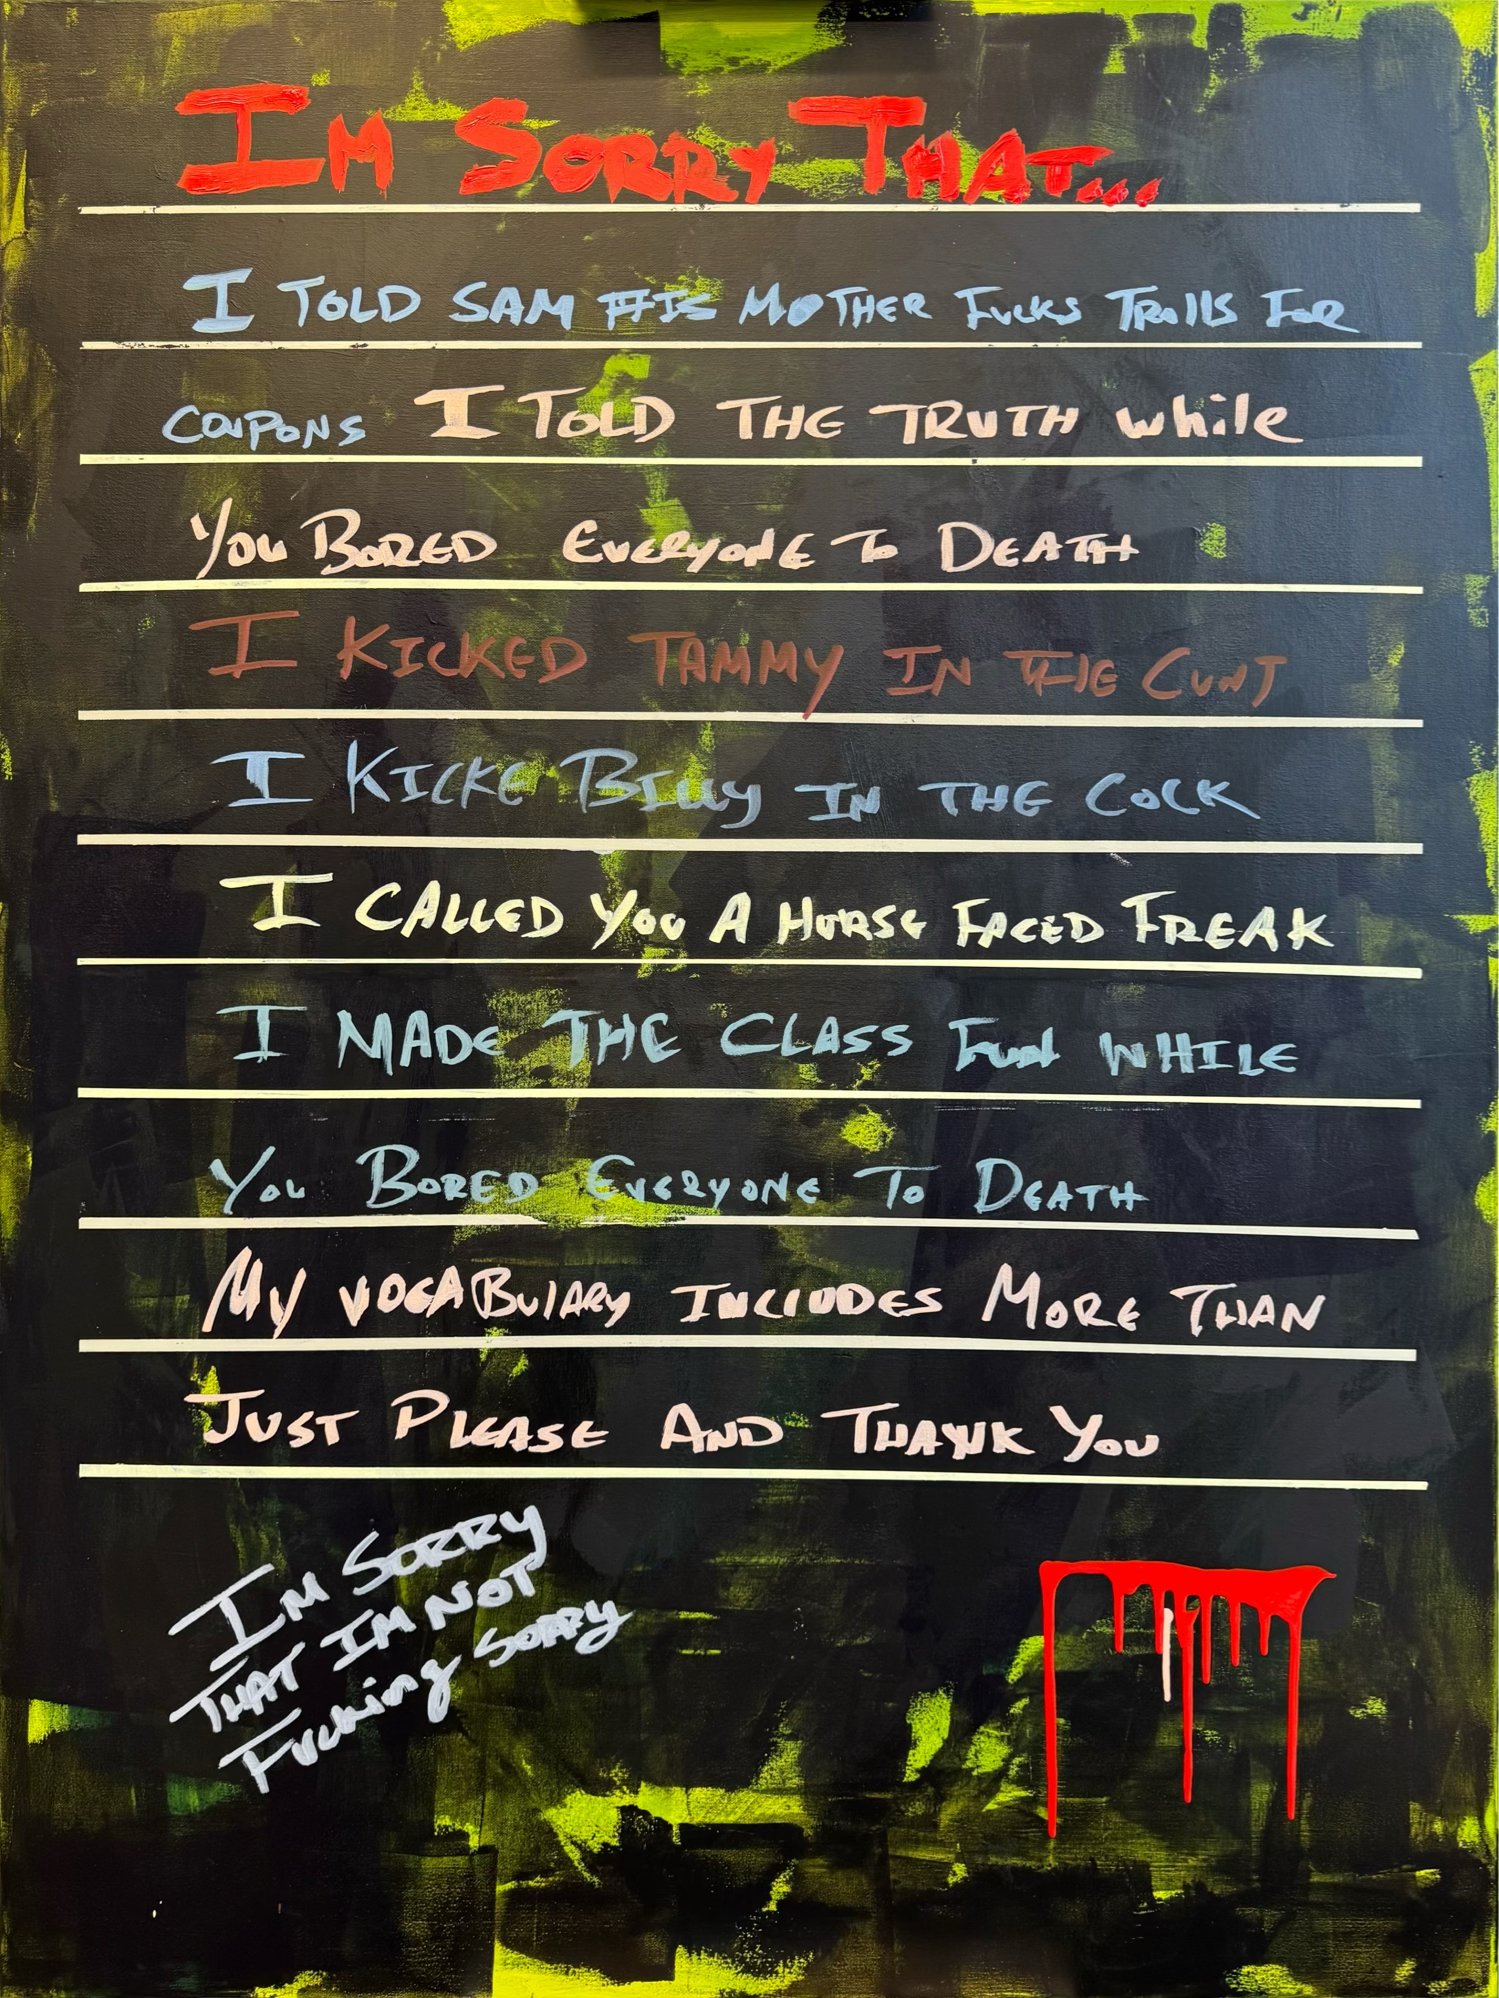 IM SORRY THAT...
I TOLD SAM HIS MOTHER FUCKS TROllS FOR
COUPONS I TOLD THE TRUTH while
YOU BORED EVERYONE TO DEATH
I KICKED TAMMY IN THE CUNT
I KICKE BILLY IN THE COCK
I CALLED YOU A HORSE FACED FREAK
I MADE THE CLASS FUN WHILE
YOU BORED EVERYONE TO DEATH
MY VOCABULARY INCLUDES MORE THAN
JUST PLEASE AND THANK YOU
IM SORRY
THAT IM NOT
FUCKING SORRY